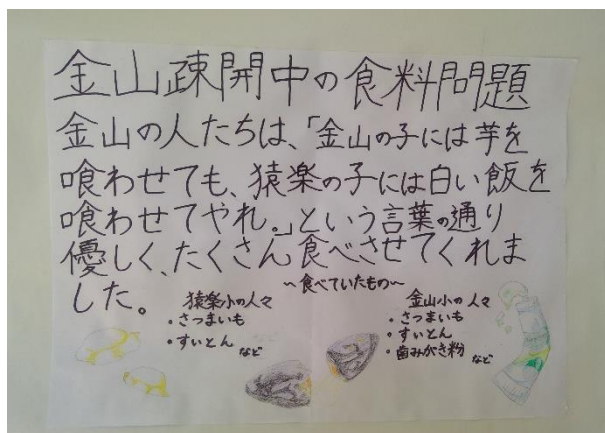 金山疎開中の食料問題
金山の人たちは、「金山の子には芋を
喰わせても、猿楽の子には白い飯を
喰わせてやれ。」という言葉の通り
優しく、たくさん食べさせてくれま
した。
～食べていたもの～
猿楽小の人々
・さつまいも
・すいとん
など
金山小の人々
・さつまいも
・すいとん
・歯みがき粉
など